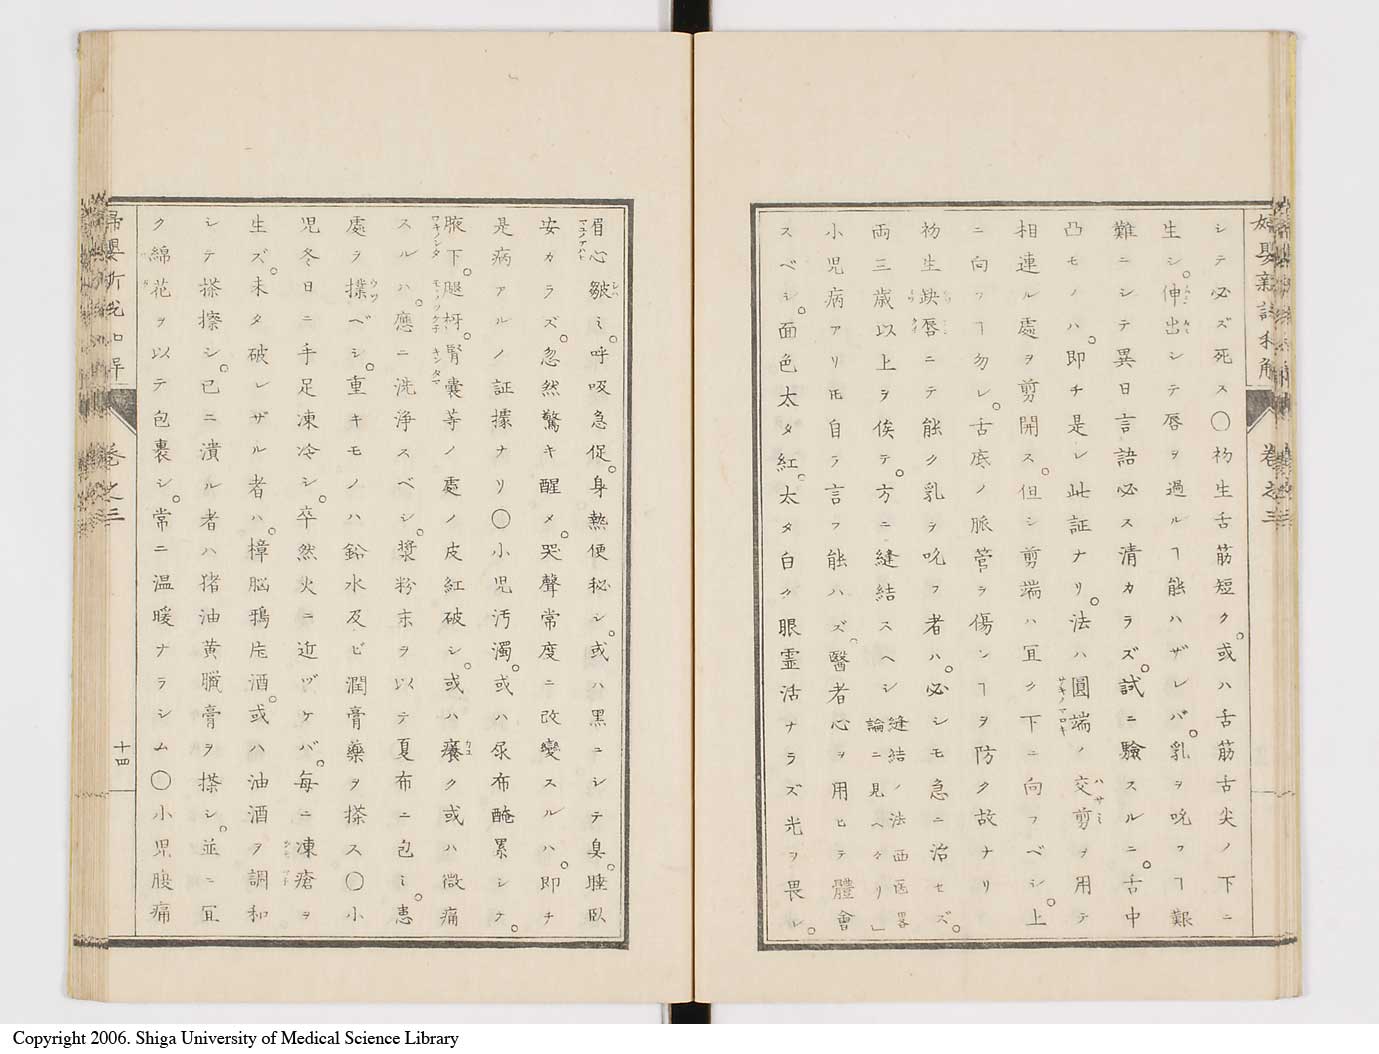 シテ必ズ死ス〇初生舌筋短ク。或ハ舌筋舌尖ノ下ニ
生シ。伸出シテ唇ヲ過ルヿ能ハザレバ。乳ヲ吮フヿ艱
難ニシテ異日言語必ス清カラズ。試ニ驗スルニ。舌中
凸モノハ。即チ是レ此証ナリ。法ハ圓端ノ交剪ヲ用テ
相連ル處ヲ剪開ス。但シ剪端ハ宜ク下ニ向フベシ。上
ニ向フヿ勿レ。舌底ノ脈管ヲ傷ンヿヲ防ク故ナリ
初生缺唇ニテ能ク乳ヲ吮フ者ハ。必シモ急ニ治セズ。
両三歳以上ヲ俟テ。方ニ縫結スヘシ縫結ノ法西医畧論ニ見ヘタリ」
小児病アリ𪜈自ラ言フ能ハズ。醫者心ヲ用ヒテ體會
スベシ。面色太タ紅。太タ白ク眼霊活ナラズ光ヲ畏レ。
眉心皺ミ。呼吸急促。身熱便秘シ。或ハ黒ニシテ臭。睡臥
安カラズ。忽然驚キ醒メ。哭聲常度ニ改變スルハ。即チ
是病アルノ証據ナリ〇小児汚濁。或ハ尿布醃累シテ。
腋下。腿枒。腎囊等ノ處ノ皮紅破シ。或ハ癢ク或ハ微痛
スルハ。應ニ洗浄スベシ。漿粉末ヲ以テ夏布ニ包ミ。患
處ヲ撲ベシ。重キモノハ鉛水及ビ潤膏藥ヲ搽ス〇小
児冬日ニ手足凍冷シ。卒然火ニ近ヅケバ。毎ニ凍瘡ヲ
生ズ。未タ破レザル者ハ。樟脳鴉片酒。或ハ油酒ヲ調和
シテ搽擦シ。已ニ潰ル者ハ猪油黄臘膏ヲ搽シ。並ニ宜
ク綿花ヲ以テ包裹シ。常ニ温暖ナラシム〇小児腹痛
巻之三
十四
Copyright 2006. Shiga University of Medical Science Library